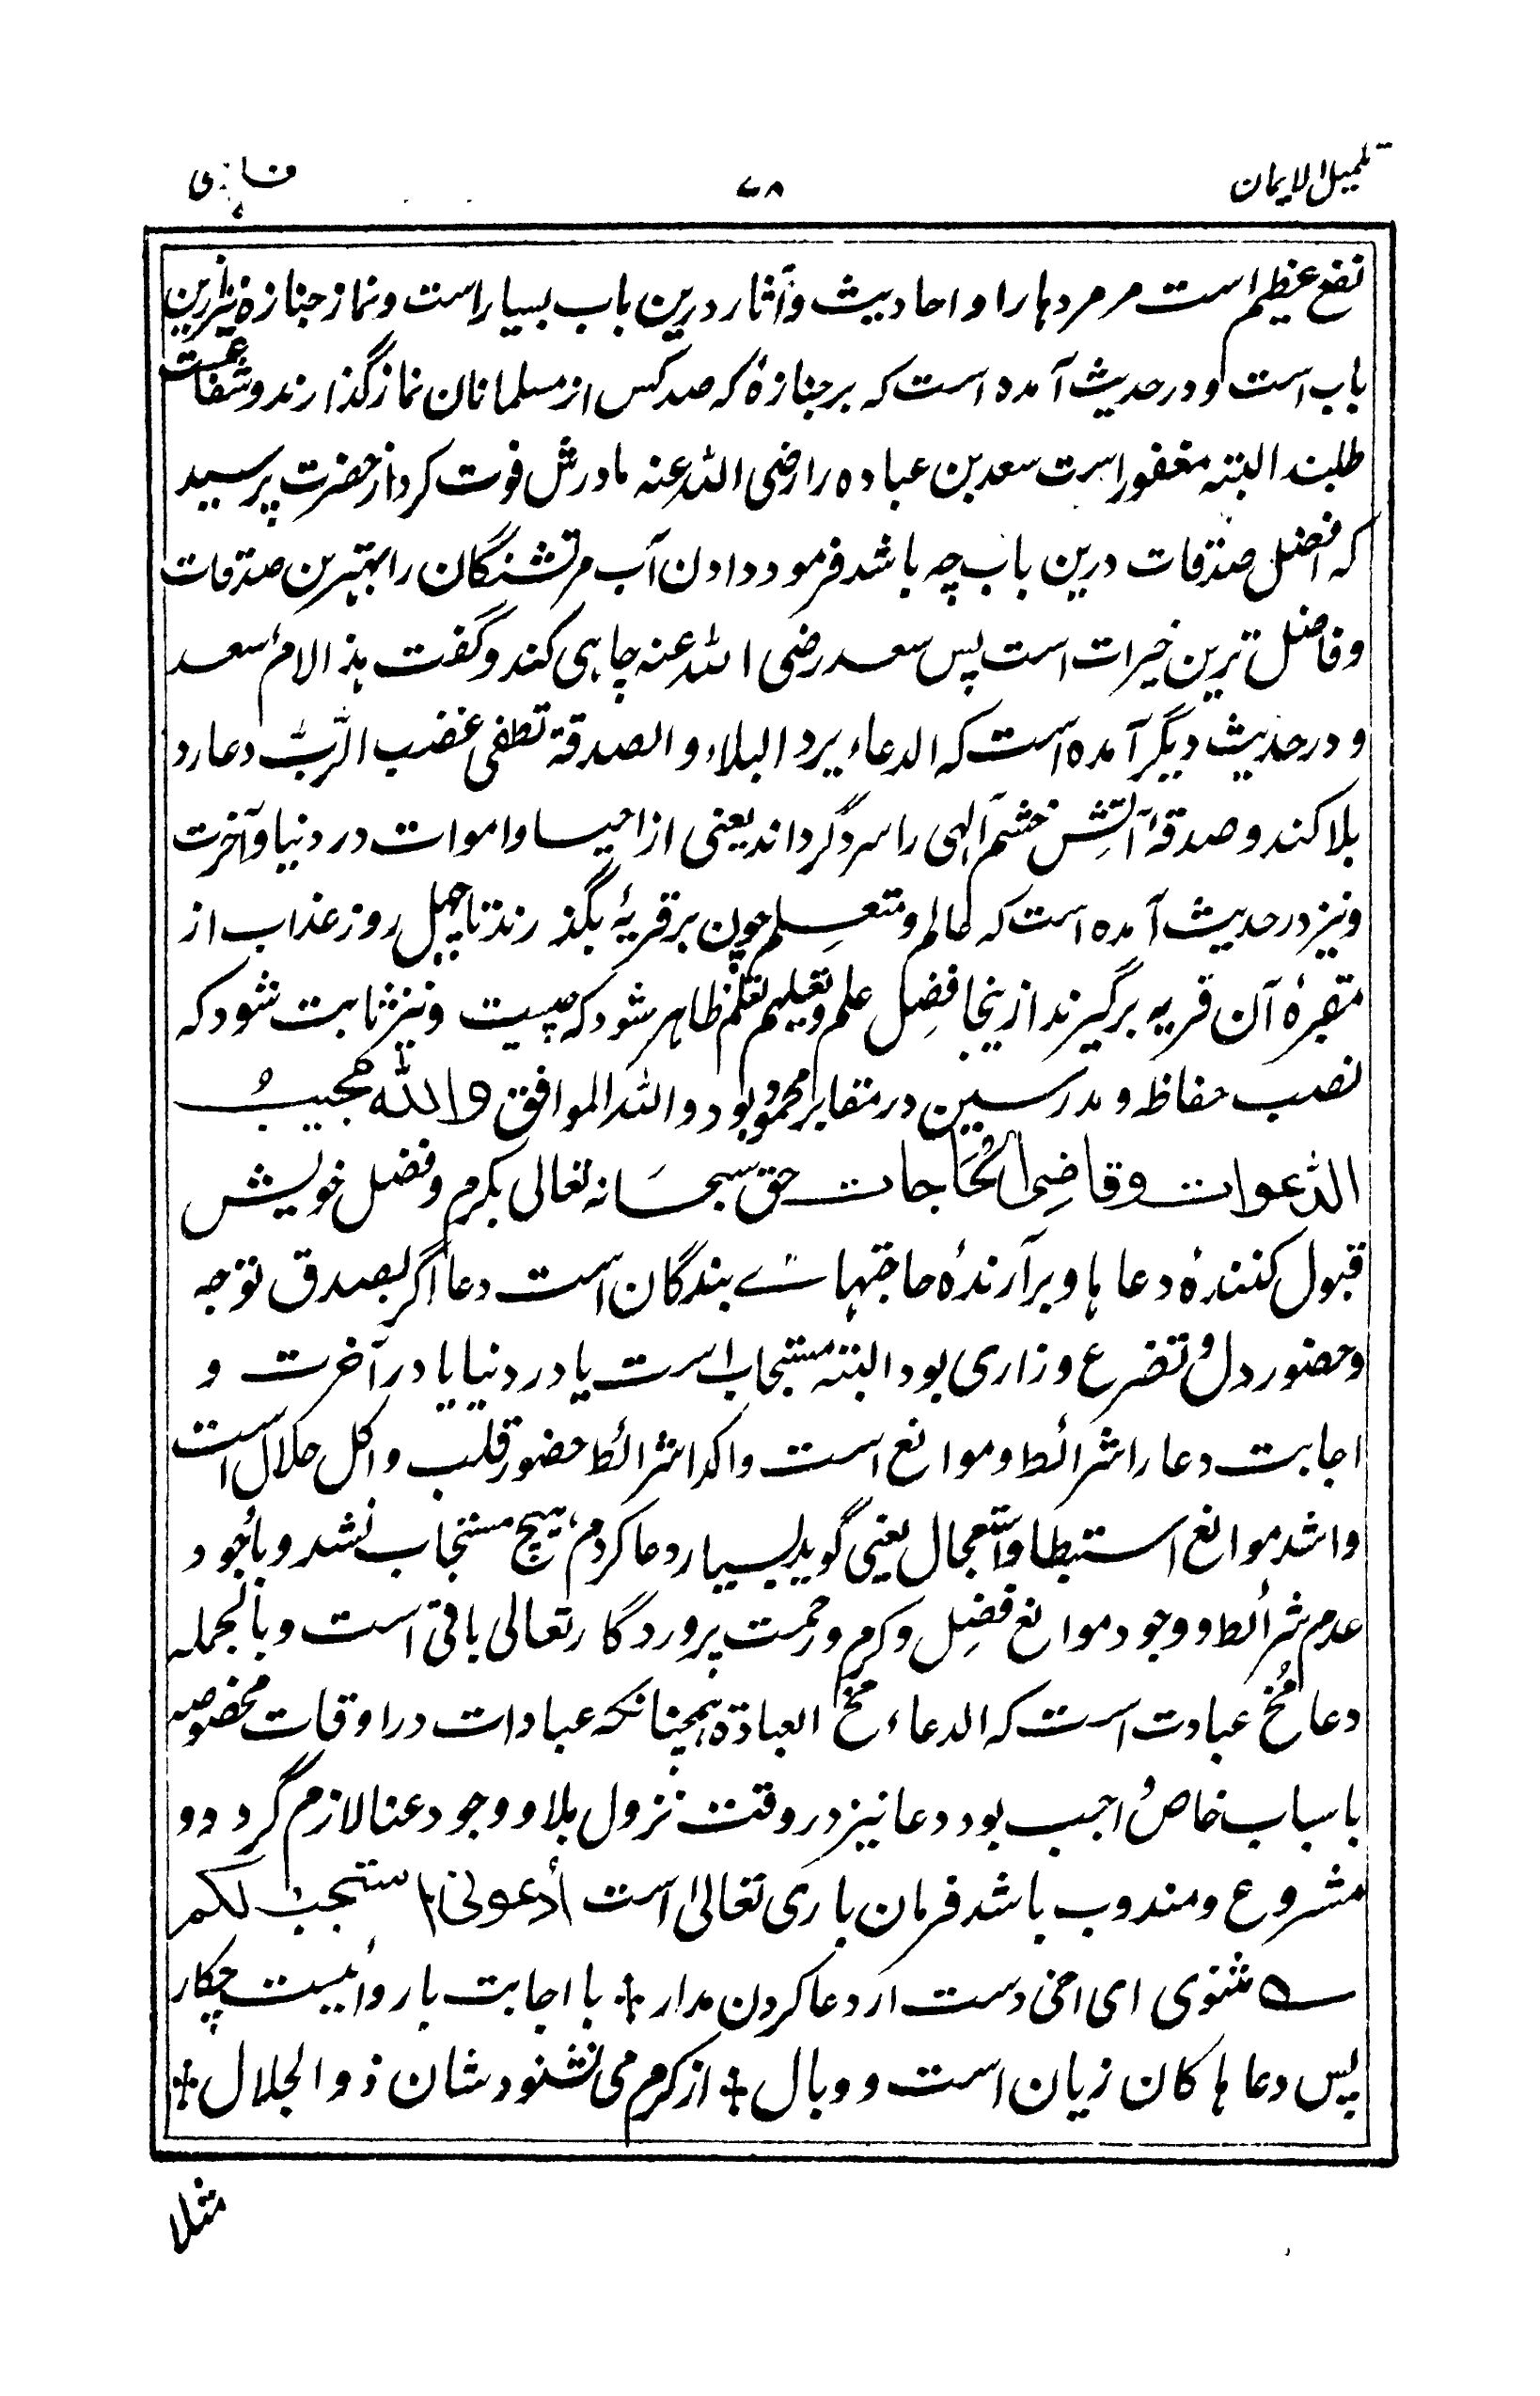 تکمیل الایمان ۷۸ فارسی
نفع عظیم است مر مردہا را و احادیث و آثار درین باب بسیار است و نماز جنازہ نیز ازین
باب است و در حدیث آمدہ است کہ بر جنازۂ کہ صد کس از مسلمانان نماز گذارند و شفاعت
طلبند البتہ مغفور است سعد بن عبادہ را رضی اللہ عنہ مادرش فوت کرد از حضرت پرسید
کہ افضل صدقات درین باب چہ باشد فرمود دادن آب مر تشنگان را بہترین صدقات
و فاضل ترین خیرات است پس سعد رضی اللہ عنہ چاہی کند و گفت ہذا لام سعد
و در حدیث دیگر آمدہ است کہ الدعاء یرد البلاء و الصدقۃ تطفی غضب الرب دعا رد
بلا کند و صدقہ آتش خشم الہی را سرد گرداند یعنی از احیا و اموات در دنیا و آخرت
و نیز در حدیث آمدہ است کہ عالم و متعلم چون بر قریۂ بگذرند تا چہل روز عذاب از
مقبرۂ آن قریہ برگیرند ازینجا فضل علم و تعلیم تعلم ظاہر شود کہ چیست و نیز ثابت شود کہ
نصب حفاظ و مدرسین در مقابر محمود بود و اللہ الموافق واللہ مجیبُ
الدعوات وقاضی الحاجات حق سبحانہ تعالی بکرم و فضل خویش
قبول کنندۂ دعاہا و برآرندۂ حاجتہاے بندگان است دعا اگر بصدق توجہ
و حضور دل و تضرع و زاری بود البتہ مستجاب است یا در دنیا یا در آخرت و
اجابت دعا را شرائط و موانع است و اکد شرائط حضور قلب و اکل حلال است
و اشد موانع استبطا و استعجال یعنی گوید بسیار دعا کردم ہیچ مستجاب نشد و باوجود
عدم شرائط و وجود موانع فضل و کرم و رحمت پروردگار تعالی باقی است و بالجملہ
دعا مُخ عبادت است کہ الدعاء مُخ العبادۃ ہمچنانکہ عبادات در اوقات مخصوصہ
باسباب خاص واجب بود دعا نیز در وقت نزول بلا و وجود عنا لازم گردد و
مشروع و مندوب باشد فرمان باری تعالیٰ است ادعونی استجب لکم
ے مثنوی ای اخی دست از دعا کردن مدار ٭ با اجابت یا رد اینست چکار
پس دعاہا کان زیان است و وبال ٭ از کرم می نشنود شان ذو الجلال ٭
مثلا